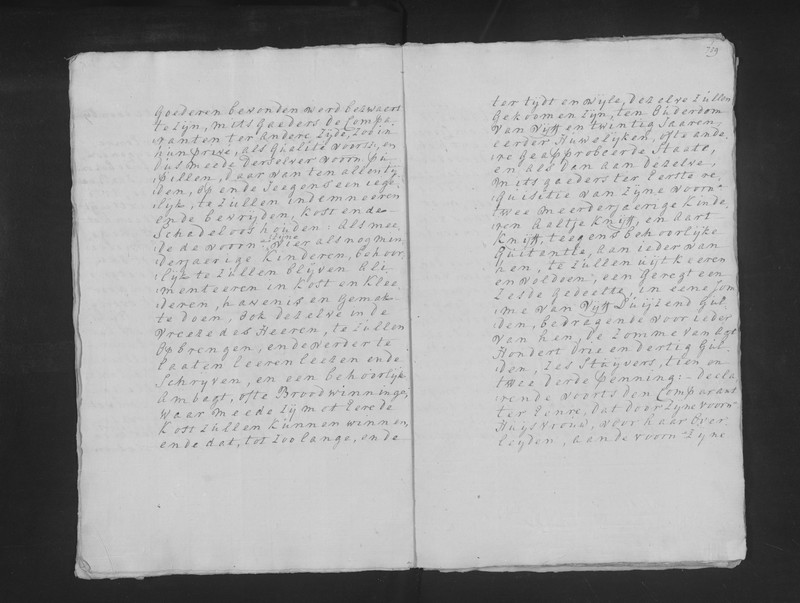 goederen bevonden werd bezwaert
te zijn, mits gaeders de Compa-
ranten ter andere Zijde, zoo in
hun prive, als qualite voorsz:, en
dus meede derselver voorn: pu-
pillen, daar van ten allen ty-
den, op ende Jeegens een iege-
lijk, te zullen indemneeren
ende bevrijden, kost ende
Schadeloos houden: Als mee-
de de voorn: zijne vier als nog min-
derjaerige Kinderen, behoor-
lijk te zullen blijven ali-
menteeren in kost en Klee-
deren, havenis en gemak
te doen, Ook dezelve in de
Vreeze des Heeren, te zullen
Opbrengen, ende verder te
laaten leeren leesen ende
Schryven, en een behoorlijk
Ambagt, ofte Broodwinninge,
waar meede zij met Eere de
Kost zullen kunnen winnen,
ende dat, tot zoo lange, ende
719
ter tydt en wyle, dezelve zullen
gekoomen zyn, ten ouderdom
van vyff en twintig Jaaren,
eerder Huwelijken, ofte ande-
re geapprobeerde Staate,
en als dan aan dezelve,
mitsgaeders ter Eerste re-
quisitie van zyne voorn:
twee meerderjaerige Kinde-
ren Aeltje Knyff, en Aart
Knyff, teegens behoorlijke
Quitentie, aan ieder van
hen, te zullen uijtkeeren
en voldoen, een geregt een
zesde gedeelte, in eene Som-
me van Vyff Duijzend Gul-
den, bedragende voor ieder
van hen, de Zomme van agt
Hondert drie en dertig Gul-
den, zes Stuyvers, tien en
twee derde penning: – decla-
rende voorts den Comparant
ter Eenre, dat door zyne voorn:
Huysvrouw, voor haar over-
leyden, aan de voorn: zyne